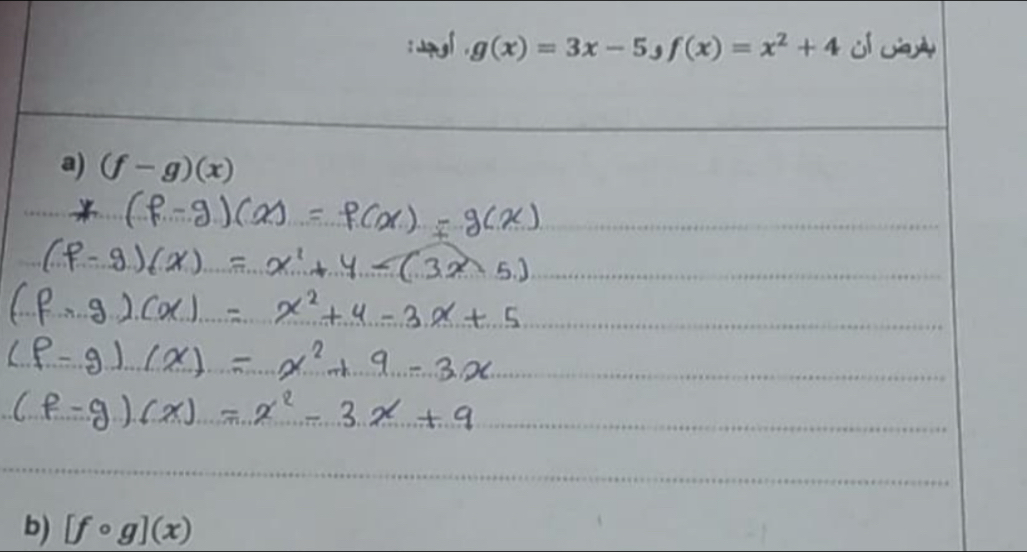 بفرض أن f(x) = x² + 4 و g(x) = 3x − 5، أوجد:
a) (f − g)(x)
* (f - g)(x) = f(x) - g(x)
(f - g)(x) = x² + 4 - (3x - 5)
(f - g)(x) = x² + 4 - 3x + 5
(f - g)(x) = x² + 9 - 3x
(f - g)(x) = x² - 3x + 9
b) [f ∘ g](x)